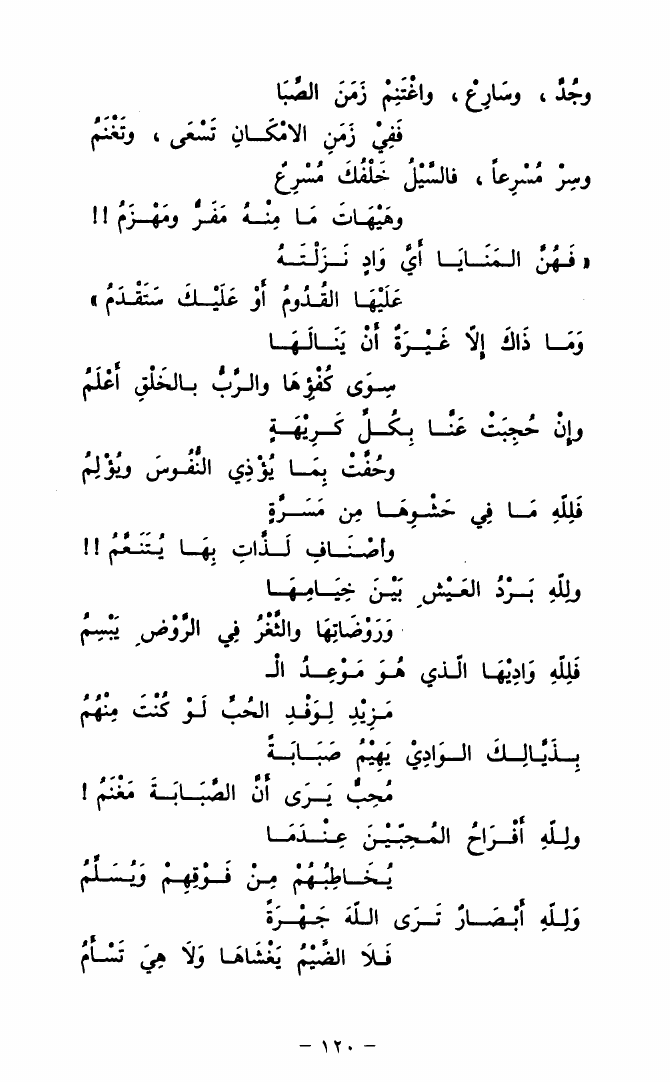 وجُدَّ ، وسَارِعْ ، واغْتَنِمْ زَمَنَ الصِّبَا
فَفِيْ زَمَنِ الامْكَانِ تَسْعَى ، وتَغْنَمُ
وسِرْ مُسْرِعاً ، فالسَّيْلُ خَلْفَكَ مُسْرِعٌ
وهَيْهَاتَ مَا مِنْهُ مَفَرٌّ ومَهْزَمُ !!
« فَهُنَّ المَنَايَا أَيُّ وَادٍ نَزَلْتَهُ
عَلَيْهَا القُدُومُ أَوْ عَلَيْكَ سَتَقْدَمُ »
وَمَا ذَاكَ إِلاَّ غَيْرَةٌ أَنْ يَنَالَهَا
سِوَى كُفْؤِهَا والرَّبُّ بالخَلْقِ أَعْلَمُ
وإِنْ حُجِبَتْ عَنَّا بِكُلِّ كَرِيْهَةٍ
وحُفَّتْ بِمَا يُؤْذِي النُّفُوسَ ويُؤْلِمُ
فَلِلّهِ مَا فِي حَشْوِهَا مِن مَسَرَّةٍ
وأصْنَافِ لَذَّاتٍ بِهَا يُتَنَعَّمُ !!
ولِلّهِ بَرْدُ العَيْشِ بَيْنَ خِيَامِهَا
وَرَوْضَاتِهَا والثَّغْرُ فِي الرَّوْضِ يَبْسِمُ
فَلِلّهِ وَادِيْهَا الَّذي هُوَ مَوْعِدُ الْـ
مَزِيْدِ لِوَفْدِ الحُبِّ لَوْ كُنْتَ مِنْهُمُ
بِذَيَّالِكَ الوَادِيْ يَهِيْمُ صَبَابَةً
مُحِبٌّ يَرَى أَنَّ الصَّبَابَةَ مَغْنَمُ !
ولِلّهِ أَفْرَاحُ المُحِبِّيْنَ عِنْدَمَا
يُخَاطِبُهُمْ مِنْ فَوْقِهِمْ وَيُسَلِّمُ
وَلِلّهِ أَبْصَارٌ تَرَى اللّهَ جَهْرَةً
فَلَا الضَّيْمُ يَغْشَاهَا وَلاَ هِيَ تَسْأَمُ
– ١٢٠ –